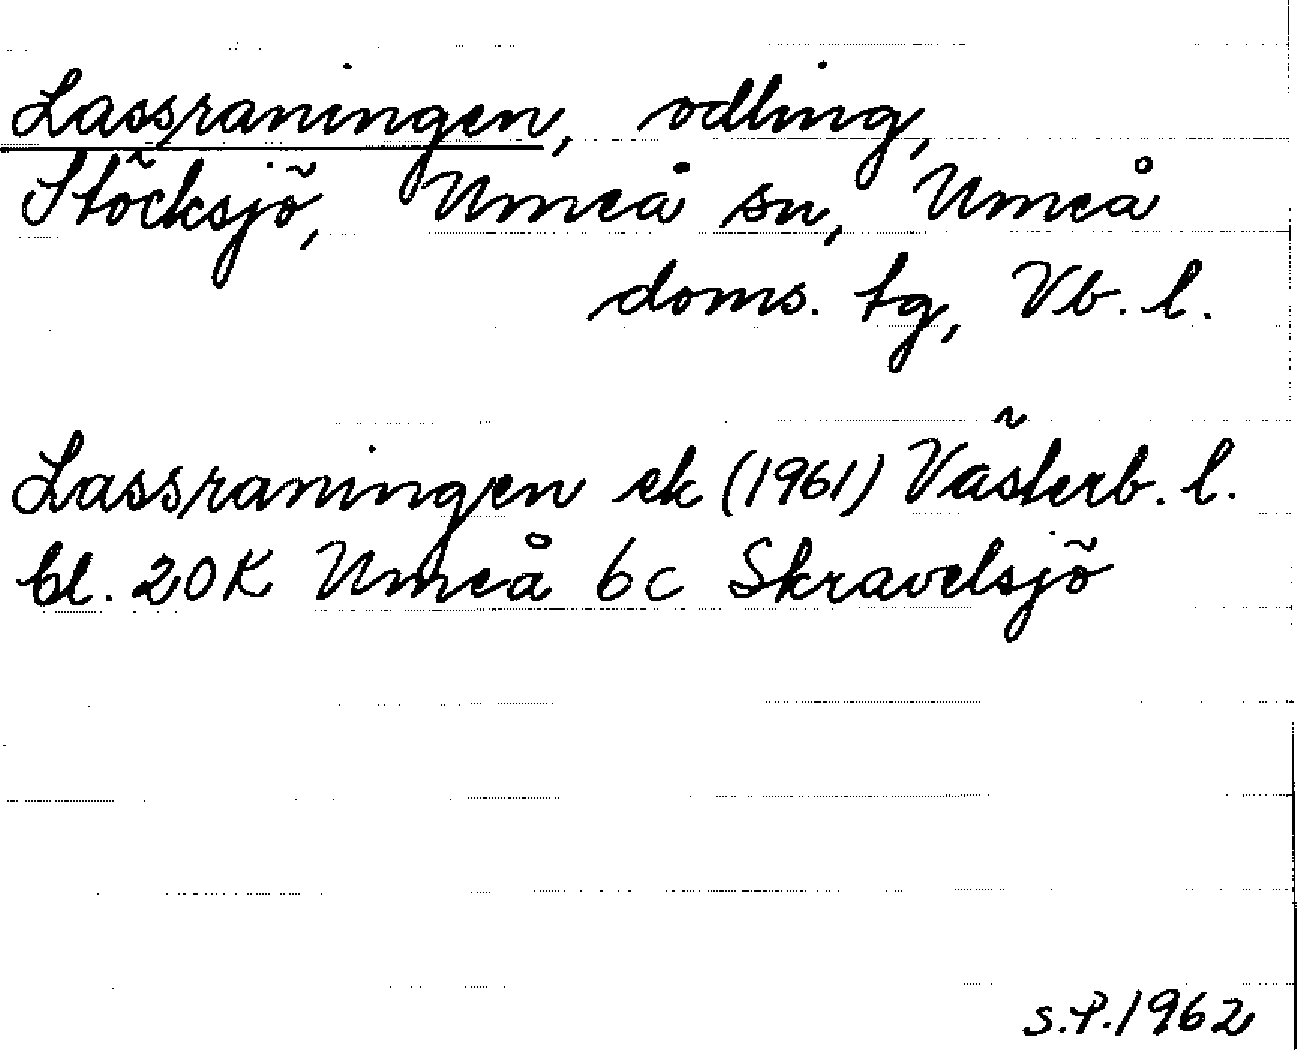 Lassraningen, odling,
Stöcksjö, Umeå sn, Umeå
doms. tg, Vb. l.
Lassraningen ek (1961) Västerb. l.
bl. 20K Umeå 6c Skravelsjö
S.P. 1962